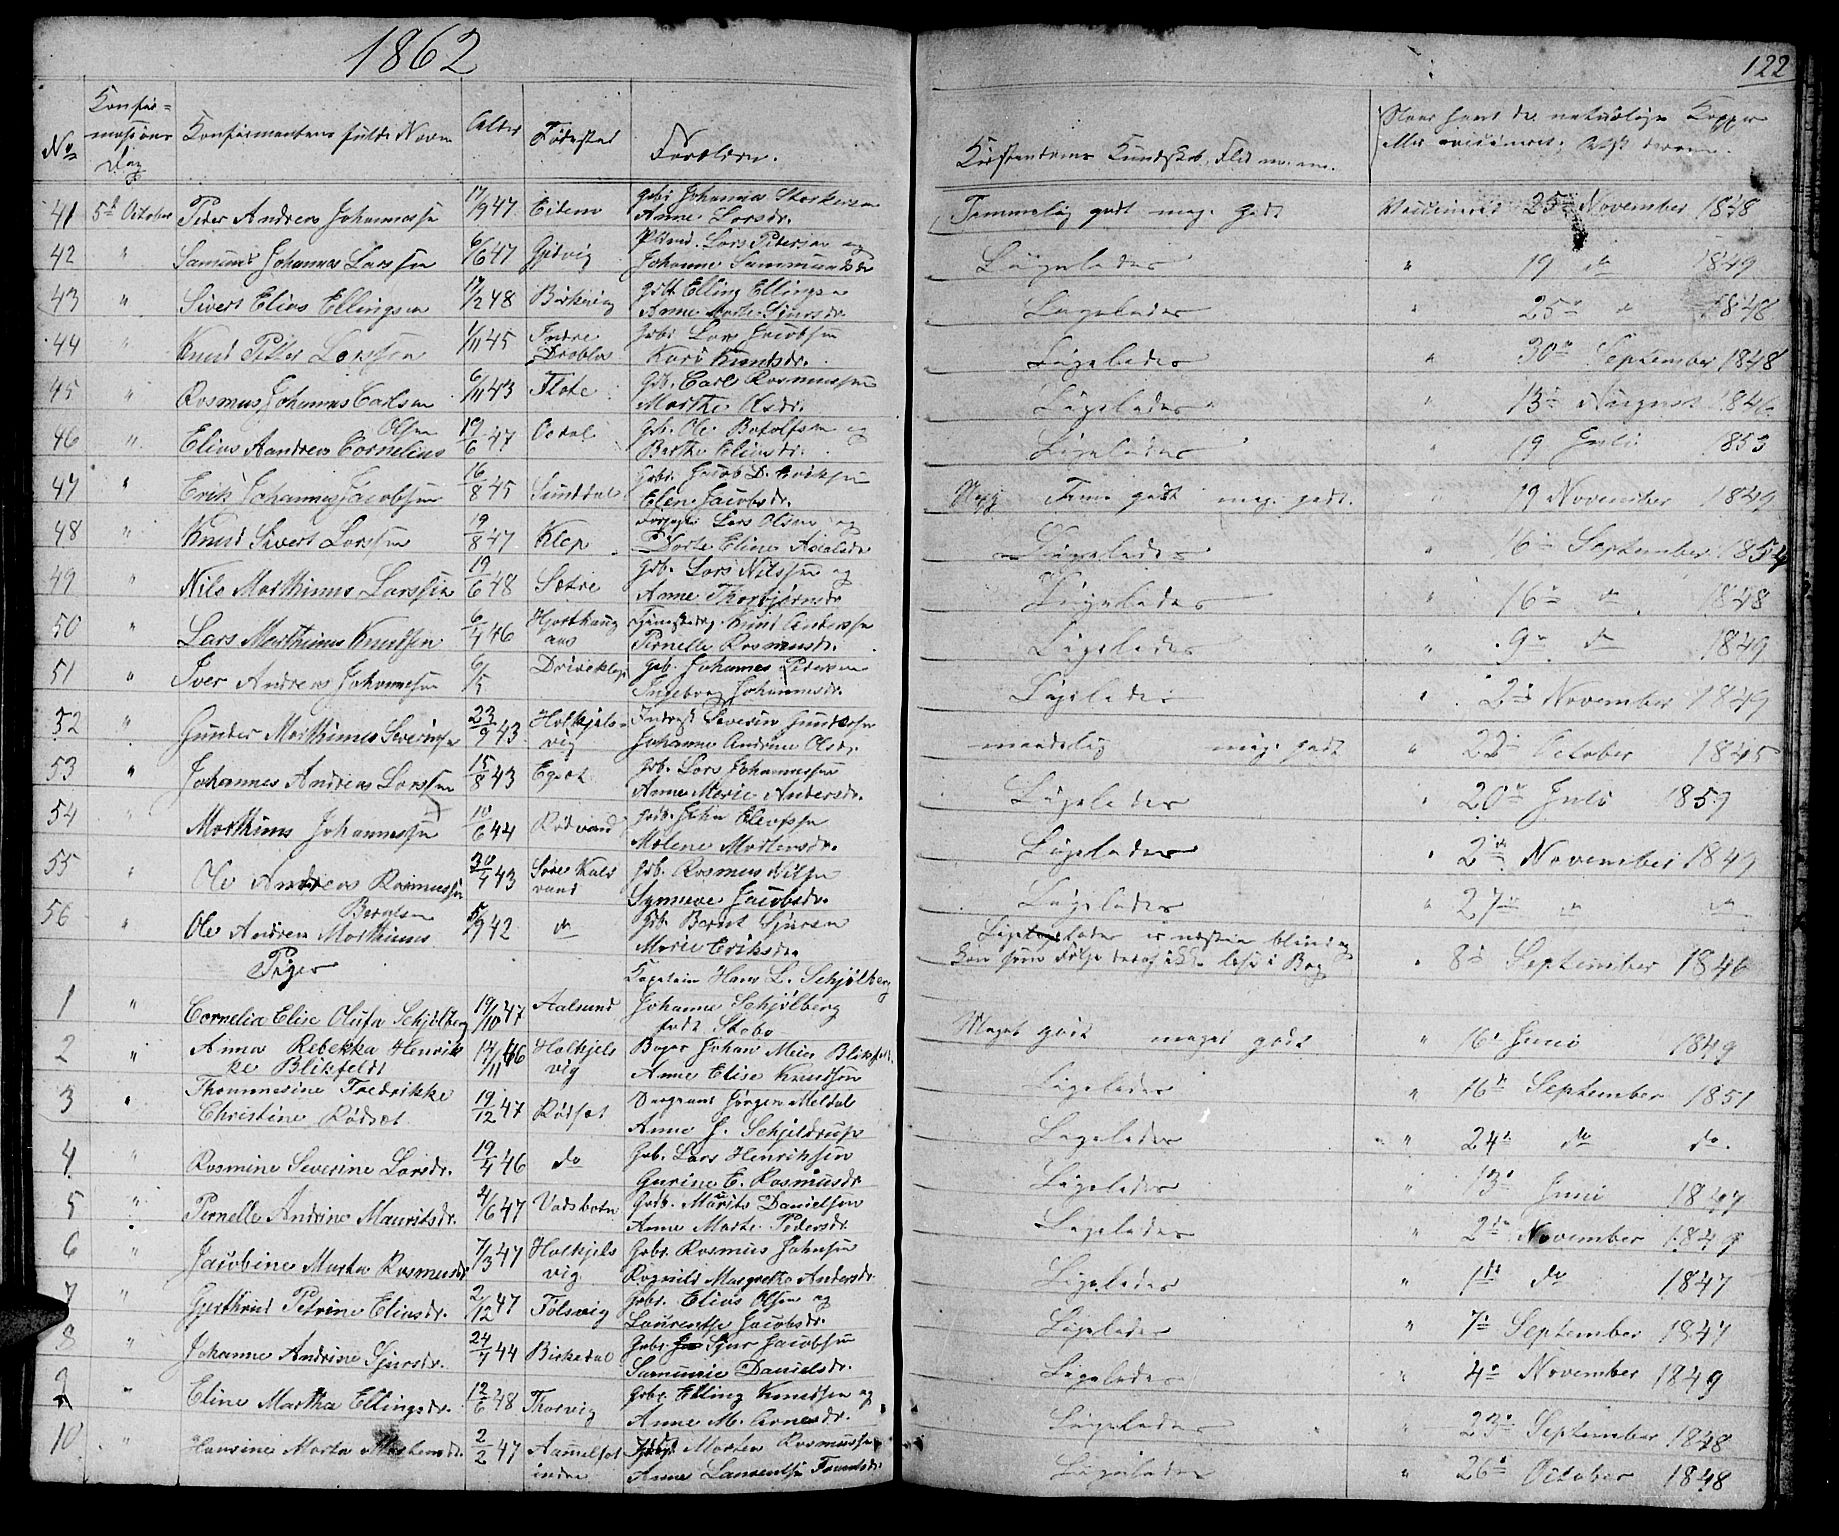 1862
122
No
Konfir=
mations
Dag
Konfirmantens fulde Navn
Alder
Fødested
Forældre.
Kristendoms Kundskab, Flid m. m.
Naar havt de naturlige Kopper
eller vaccineret;
41 5te October Peder Andreas Johannessen 17/9 47. Eidem Gbr. Johannes Storkersen
Anne Larsdr.
Temmelig godt meg. godt Vaccineret 25de November 1848
42 " Samund Johannes Larssen 6/6 47 Gjdvig Lars Petersen og
Johanne Sammundsdr
Ligeledes " 19 do 1849
43 " Sivert Elias Ellingsen 17/2 48 Birkevig Elling Ellingsen
Anne Marte Sjursdr.
Ligeledes " 25de do 1848
44 " Knud Petter Larssen 1/11 45 Indre
Drablos Gbr. Lars Jacobsen
Kari Knutsdr.
Ligeledes " 30te September 1848
45 " Rasmus Johannes Carlsen 6/11 43 Flote Gbr. Carl Rasmussen
Marthe Olsdr.
Ligeledes " 13de August 1846
46 " Elias Aandreas Cornelius
Olsen 19/6 47 Aadal Gbr. Ole Botolfsen og
Berthe Eliasdr.
Ligeledes " 19 Juli 1853
47 " Erik Johannes Jacobsen 16/8 45 Sunddal Gbr. Jacob D. Eriksen
Elen Jacobsdr.
Tem. godt meg. godt. " 19 November 1849
48 " Knud Sivert Larssen 19/8 47 Klep Lars Olsen og
Dorte Eline Axelsdr
Ligeledes " 16de September 1854
49 " Nils Marthinus Larssen 19/6 48 Sætre Gbr. Lars Nilssen og
Anne Thorbjørnsdr
Ligeledes " 16de do 1848
50 " Lars Marthinus Knudsen 6/4 46 Hjorthaug
aas Knut Andersen
Pernelle Rasmusdr.
Ligeledes " 9de do 1849
51 " Iver Andreas Johannesen 6/5 Driveklep Gbr. Johannes Petersen
Ingeborg Johannesdr.
Ligeledes " 2de November 1849
52 " Gunder Marthinus Severinsen 23/9 43 Holkjels=
vig Severin Gundersen
Johanne Andrine Olsdr.
maadelig meg. godt " 22de October 1845
53 " Johannes Andreas Larssen 15/8 43 Egset Gbr. Lars Johannessen
Anne Marie Andersdr.
Ligeledes " 20de Juli 1857
54 " Marthinus Johannessen 10/6 44 Rødvand Gbr. John Elevssen
Malene Mortensdr.
Ligeledes " 2de November 1849
55 " Ole Andreas Rasmussen 30/4 43 Søre Kals
vand Gbr. Rasmus Nilsen
Synneve Jacobsdr.
Ligeledes " 27de do do
56 " Ole Andreas Marthinus
Berntsen 5/9 42 do Gbr. Bernt Sjursen
Marie Eriksdr.
Ligeledes er næsten blind og
kan som Følge deraf ikke læse i Bog " 8de September 1846
Piger
1 " Cornelia Elise Olufa Schjølberg 19/10 47 Aalsund Kaptein Hans L. Schjølberg
Johanne Schjølberg
født Stabo
Meget godt meget godt " 16de Juni 1849
2 " Anna Rebekka Henrik
ke Blikfeldt 14/11 46 Holkjels
vig Johan Meier Blikfeldt
Anne Elise Knudsen
Ligeledes " 16de September 1851
3 " Thommesine Fredrikke
Christine Rødset 19/12 47 Rødset Jørgen Meldal
Anne J. Schjeldrup
Ligeledes " 24de do do.
4 " Rasmine Severine Larsdr. 19/4 46 do Gbr. Lars Henriksen
Gurine E. Rasmusdr
Ligeledes " 13de Juni 1847
5 " Pernelle Andrine Mauritsdr. 4/6 47 Vadsbotn Gbr. Mauits Danielsen
Anne Marte Pedersdr.
Ligeledes " 2de November 1849
6 " Jacobine Marta Rasmusdr 7/3 47 Holkjels
vig Gbr. Rasmus Johnsen
Rognild Margretha Andersdr.
Ligeledes " 1de do 1847
7 " Gjerthrud Petrine Eliasdr. 2/12 47 Følsvig Gbr. Elias Olsen og
Laurentse Jacobsdr.
Ligeledes " 7de September 1847
8 " Johanne Andrine Sjursdr. 24/4 44 Birkedal Gbr. Sjur Jacobsen
Danielsdr.
Ligeledes " 4de November 1849
9 " Eline Martha Ellingsdr. 12/6 48 Thorvig Gbr. Elling Knudsen og
Anne M. Arnesdr.
Ligeledes " 23de September 1848
10 " Hansine Marta Mortensdr. 2/2 47 Aamelfot
indre Morten Rasmussen
Anne Laurentse
Ligeledes " 26de October 1848